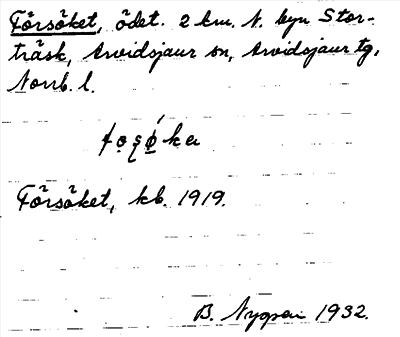 Försöket, ödet. 2 km. N. byn Stor-
träsk, Arvidsjaur sn, Arvidsjaur tg,
Norrb. l.
Försöket, kb. 1919.
B. Nygren 1932.